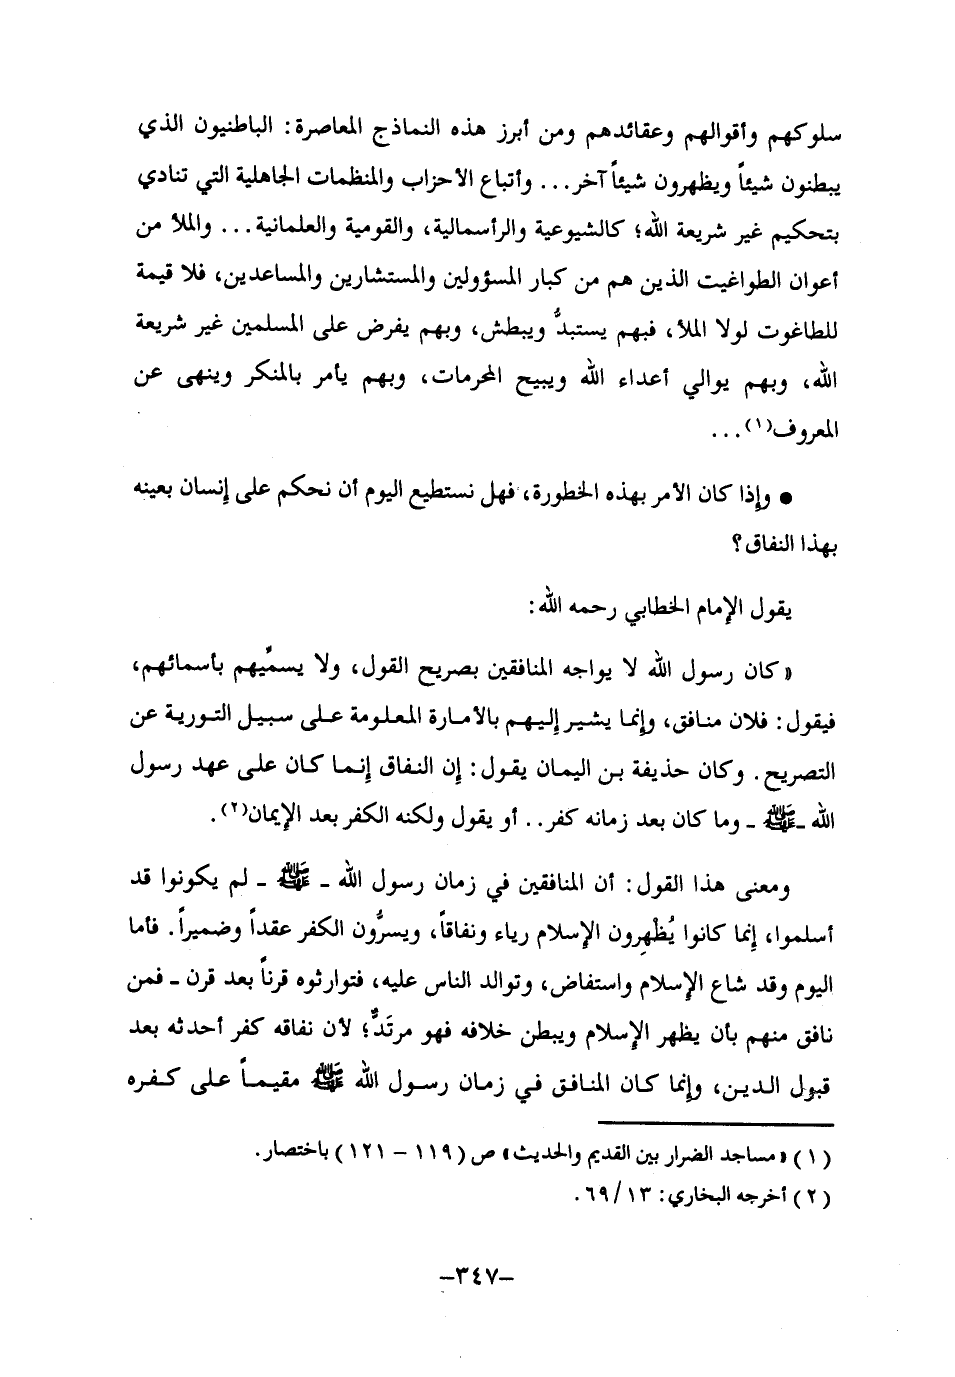 سلوكهم وأقوالهم وعقائدهم ومن أبرز هذه النماذج المعاصرة: الباطنيون الذي
يبطنون شيئاً ويظهرون شيئاً آخر... وأتباع الأحزاب والمنظمات الجاهلية التي تنادي
بتحكيم غير شريعة الله؛ كالشيوعية والرأسمالية، والقومية والعلمانية... والملأ من
أعوان الطواغيت الذين هم من كبار المسؤولين والمستشارين والمساعدين، فلا قيمة
للطاغوت لولا الملأ، فبهم يستبدُّ ويبطش، وبهم يفرض على المسلمين غير شريعة
الله، وبهم يوالي أعداء الله ويبيح المحرمات، وبهم يأمر بالمنكر وينهى عن
المعروف(١)...
● وإذا كان الأمر بهذه الخطورة، فهل نستطيع اليوم أن نحكم على إنسان بعينه
بهذا النفاق؟
يقول الإمام الخطابي رحمه الله:
«كان رسول الله لا يواجه المنافقين بصريح القول، ولا يسمِّيهم بأسمائهم،
فيقول: فلان منافق، وإنما يشير إليهم بالأمارة المعلومة على سبيل التورية عن
التصريح. وكان حذيفة بن اليمان يقول: إن النفاق إنما كان على عهد رسول
الله ـ ﷺ ـ وما كان بعد زمانه كفر.. أو يقول ولكنه الكفر بعد الإيمان(٢).
ومعنى هذا القول: أن المنافقين في زمان رسول الله ـ ﷺ ـ لم يكونوا قد
أسلموا، إنما كانوا يُظْهِرون الإسلام رياء ونفاقاً، ويسرُّون الكفر عقداً وضميراً. فأما
اليوم وقد شاع الإسلام واستفاض، وتوالد الناس عليه، فتوارثوه قرناً بعد قرن ـ فمن
نافق منهم بأن يظهر الإسلام ويبطن خلافه فهو مرتَدٌّ؛ لأن نفاقه كفر أحدثه بعد
قبول الدين، وإنما كان المنافق في زمان رسول الله ﷺ مقيماً على كفره
(١) «مساجد الضرار بين القديم والحديث» ص (١١٩ - ١٢١) باختصار.
(٢) أخرجه البخاري: ٦٩/١٣.
-٣٤٧-